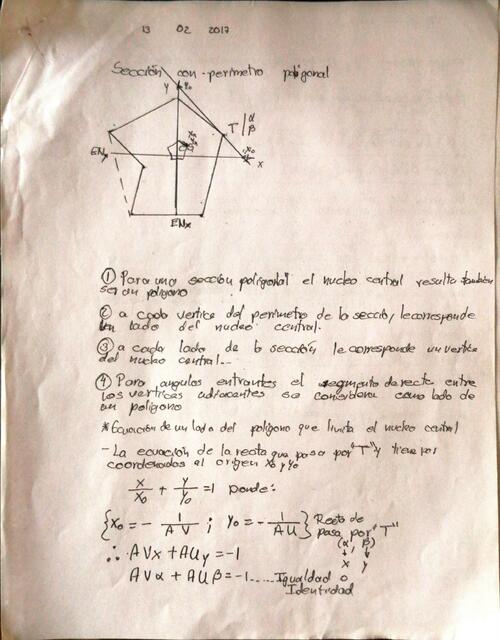 13 02 2017
Sección con perimetro poligonal
Y Y₀
T | α
β
ENy
X₀
X
ENx
① Para una sección poligonal el nucleo central resulta también
ser un poligono
② a cada vertice del perimetro de la sección, le corresponde
un lado del nucleo central.
③ a cada lado de la sección le corresponde un vertice
del nucleo central..
④ Para angulos entrantes el segmento de recta entre
los vertices adiacentes se considera como lado de
un poligono
* Ecuación de un lado del poligono que limita el nucleo central
- La ecuación de la recta que pasa por "T" y tiene por
coordenadas al origen X₀ y Y₀
X/X₀ + Y/Y₀ = 1 Donde:
{X₀ = - 1/AV ; Y₀ = - 1/AU} Recta de
pasa por "T"
(α, β)
↓ ↓
x y
∴ AVx + AUy = -1
AVα + AUβ = -1 .... Igualdad o
Identidad